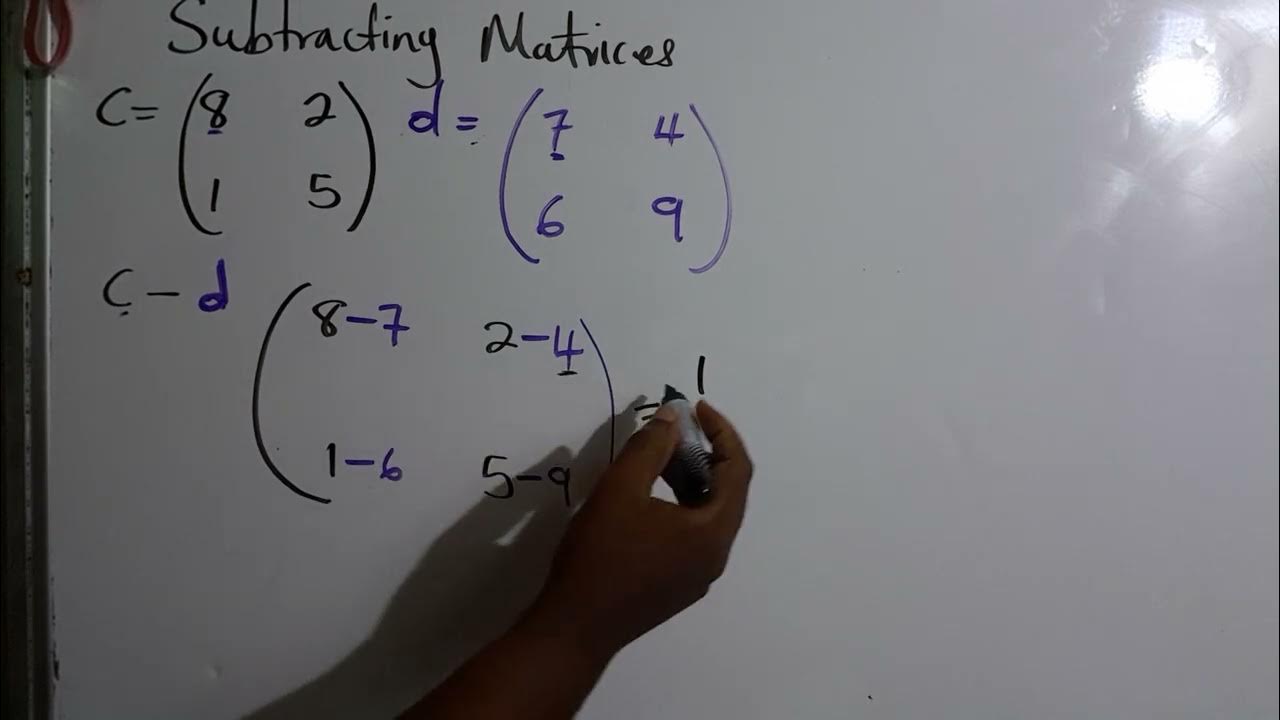 Subtracting Matrices
C= (8 2) d = (7 4)
1 5 6 9
C - d (8-7 2-4)
= 1
1-6 5-9